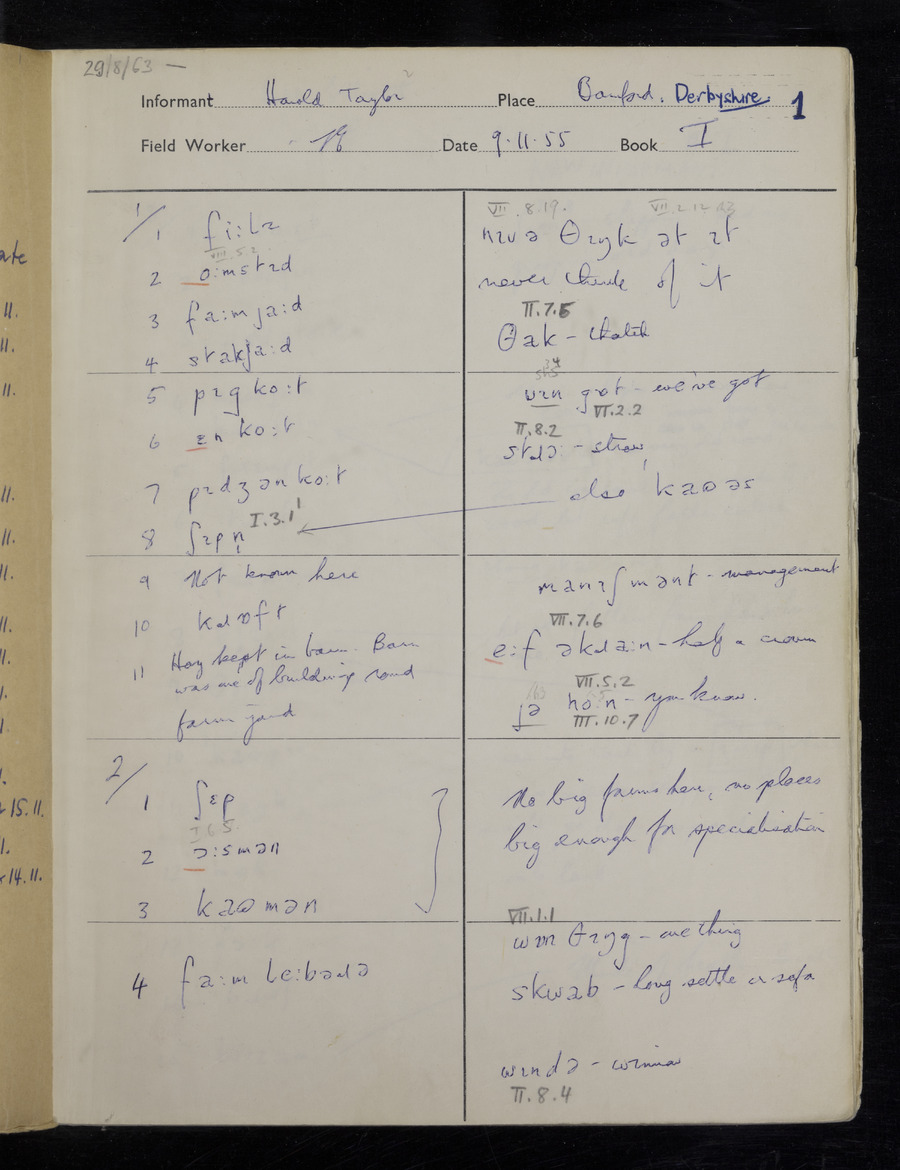 29/8/63 —
Informant Harold Taylor Place Bamford. Derbyshire. 1
Field Worker Date 9.11.55 Book I
1/
1 fiːlz
VIII.5.2
2 oːmstɪd
3 faːmjaːd
4 stakjaːd
5 pɪgkoːt
6 ɛnkoːt
7 pɪdʒənkoːt
8 ʃɪpn̩ I.3.1
9 Not known here
10 kɹɒft
11 Hay kept in barn. Barn
was one of buildings round
farm yard
2/
1 ʃɛp
I.6.5.
2 ɔːsmən
3 kaʊmən
4 faːm leːbəɹə
VII.8.19. VII.2.12
nɪvə θɪŋk ət ɪt
never think of it
II.7.6
θak – thatch
wɪn gɒt – we've got
VI.2.2
II.8.2
stɹəː – straw
also kaʊəs
manɪʃmənt – management
VII.7.6
eːf əkɹaːn – half a crown
VII.5.2
jə noːn – you know.
III.10.7
No big farms here, no places
big enough for specialisation
VII.1.1
wɒn θɪŋg – one thing
skwab – long settle or sofa
wɪndə – winnow
II.8.4
ate
11.
11.
11.
11.
11.
11.
11.
11.
15.11.
14.11.